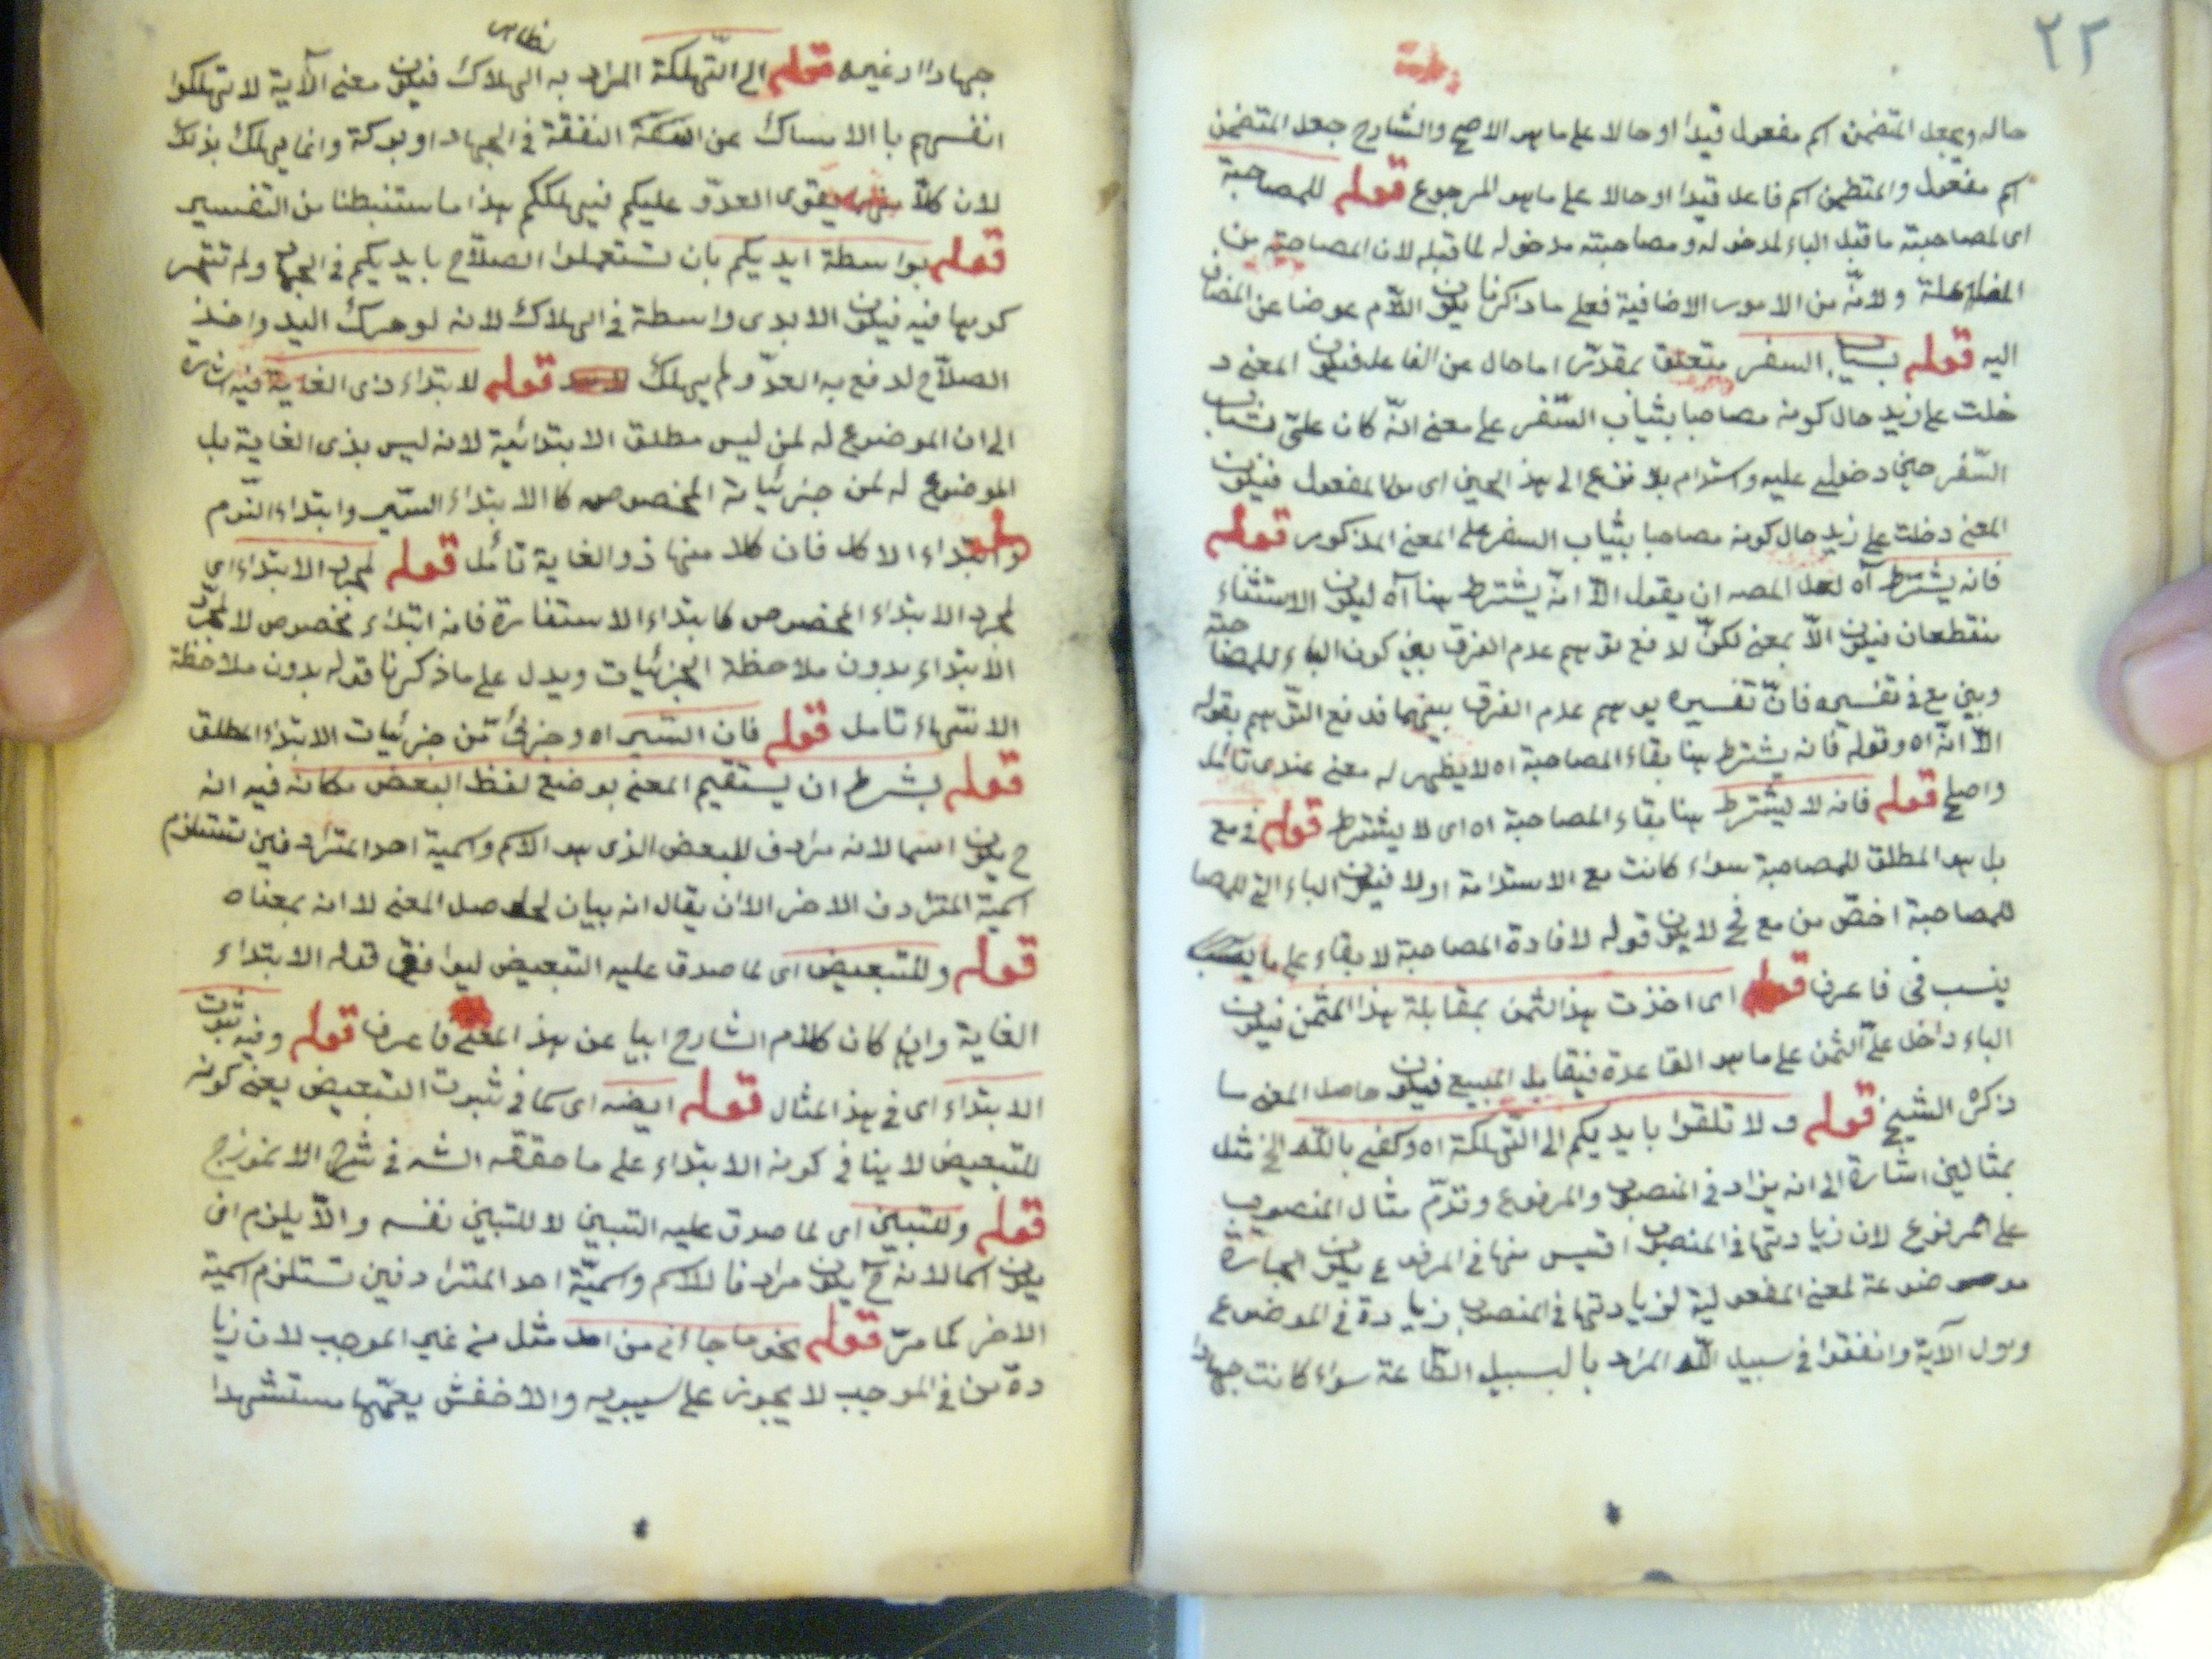 ٢٢
حاله ويجعل المتضمن اسم مفعول قيدا او حالا على ما هو الاصح والشارح جعل المتضمن
اسم مفعول والمتضمن اسم فاعل قيدا او حالا على ما هو المرجوع قوله للمصاحبة
اى لمصاحبته ما قبل الباء لمدخوله ومصاحبته مدخوله لما قبله لان المصاحبة من
ولانه من الامور الاضافية فعلى ما ذكرنا يكون اللام عوضا عن المضاف
اليه قوله السفر متعلق بمقدر اما حال عن الفاعل فيكون المعنى د
خلت على زيد حال كونه مصاحبا بثياب السفر على معنى انه كان على ثياب
السفر حين دخولى عليه واستدام الى هذ الحين اى من المفعول فيكون
المعنى دخلت على زيد حال كونه مصاحبا بثياب السفر على المعنى المذكور قوله
فانه يشترط آه لعل المصه ان يقول الا انه يشترط هنا آه ليكون الاستثناء
منقطعا فيكون الا بمعنى لكن لدفع توهم عدم الفرق بين كون الباء للمصا حبة
وبين مع فى تفسيره فان تفسيره يوهم عدم الفرق بينهما فدفع التوهم بقوله
الا انه اه وقوله فانه يشترط هنا بقاء المصاحبة اه لا يظهر له معنى عندى تأمل
واصلح قوله فانه لا يشترط هنا بقاء المصاحبة اه اى لا يشترط قوله فى مع
بل هو المطلق للمصاحبة سواء كانت مع الاستدامة اولا فيكون الباء التى للمصا
للمصاحبة اخص من مع فح لا يكون قوله لافادة المصاحبة لا بقاء على ما
ينسب فى فاعرف قوله اى اخذت هذ الثمن بمقابلة هذا المثمن فيكون
الباء داخل على الثمن على ما هو القاعدة فيقابل المبيع فيكون حاصل المعنى ما
ذكره الشيخ قوله و لا تلقوا بايديكم الى التهلكة اه وكفى بالله الخ مثل
بمثالين اشارة الى انه يزاد فى المنصوب والمرفوع وقدم مثال المنصوب
على المرفوع لان زيادتها فى المنصوب اقيس منها فى المرفوع يكون الجارة
موضوعة لمعنى المفعولية لزيادتها فى المنصوب زيادة فى الموضوع
واول الآية وانفقوا فى سبيل الله المراد بالسبيل الطاعة سواء كانت جهادا
جهادا او غيره قوله الى التهلكة المراد به الهلاك فيكون معنى الآية لا تهلكوا
انفسهم با الامساك عن النفقة فى الجهاد او بوكة وانما يهلك بذلك
لان كلا يقوى العدو عليكم فيهلككم هذا ما ستنبطنا من التفسير
قوله بواسطة ايديكم بان تستعملوا الصلاح بايديكم فى الجهاد ولم
فيه فيكون الايدى واسطة فى الهلاك لانه لو حرك اليد واخذ
الصلاح لدفع به العدو لم يهلك قوله لابتداء ذى الغاية فيه اشارة
الى ان الموضوع له لمن ليس مطلق الابتدائية لانه ليس بذى الغاية بل
الموضوع له لمن جزئياته المخصوص كا الابتداء السير وابتداء النوم
وابتداء الاكل فان كلا منها ذو الغاية تأمل قوله لمجرد الابتداء اى
لمجرد الابتداء المخصوص كابتداء الاستفادة فانه ابتداء مخصوص لا لمجرد
الابتداء بدون ملاحظة الجزئيات ويدل على ما ذكرنا قوله بدون ملاحظة
الانتهاء تامل قوله فان السير اه وجزئى من جزئيات الابتداء المطلق
قوله بشرط ان يستقيم المعنى بوضع لفظ البعض مكانه فيه انه
ح يكون اسما لانه مرادف للبعض الذى هو الاسم واسمية احد المترادفين تستلزم
اسمية المترادف الاخر الا ان يقال انه بيان لحاصل المعنى لا انه بمعناه
قوله وللتبعيض اى لما صدق عليه التبعيض ليوافق قوله الابتداء
الغاية وان كان كلام الشارح ابيا عن هذ المعنى فاعرف قوله وفيه ثبوت
الابتداء اى فى هذ المثال قوله ايضه اى كما فى ثبوت التبعيض يعنى كونه
للتبعيض لا ينافى كونه الابتداء على ما حققه الشه فى شرح الانموزج
قوله وللتبيين اى لما صدق عليه التبيين لا للتبيين نفسه والا يلزم ان
يكون اسما لانه ح يكون مرادفا للاسم واسمية احد المترادفين تستلزم اسمية
الاخر كما مر قوله نحو ما جاءنى من احد مثل من غير الموجب لان زيا
دة من فى الموجب لا يجوز على سيبويه والاخفش يعممها مستشهدا